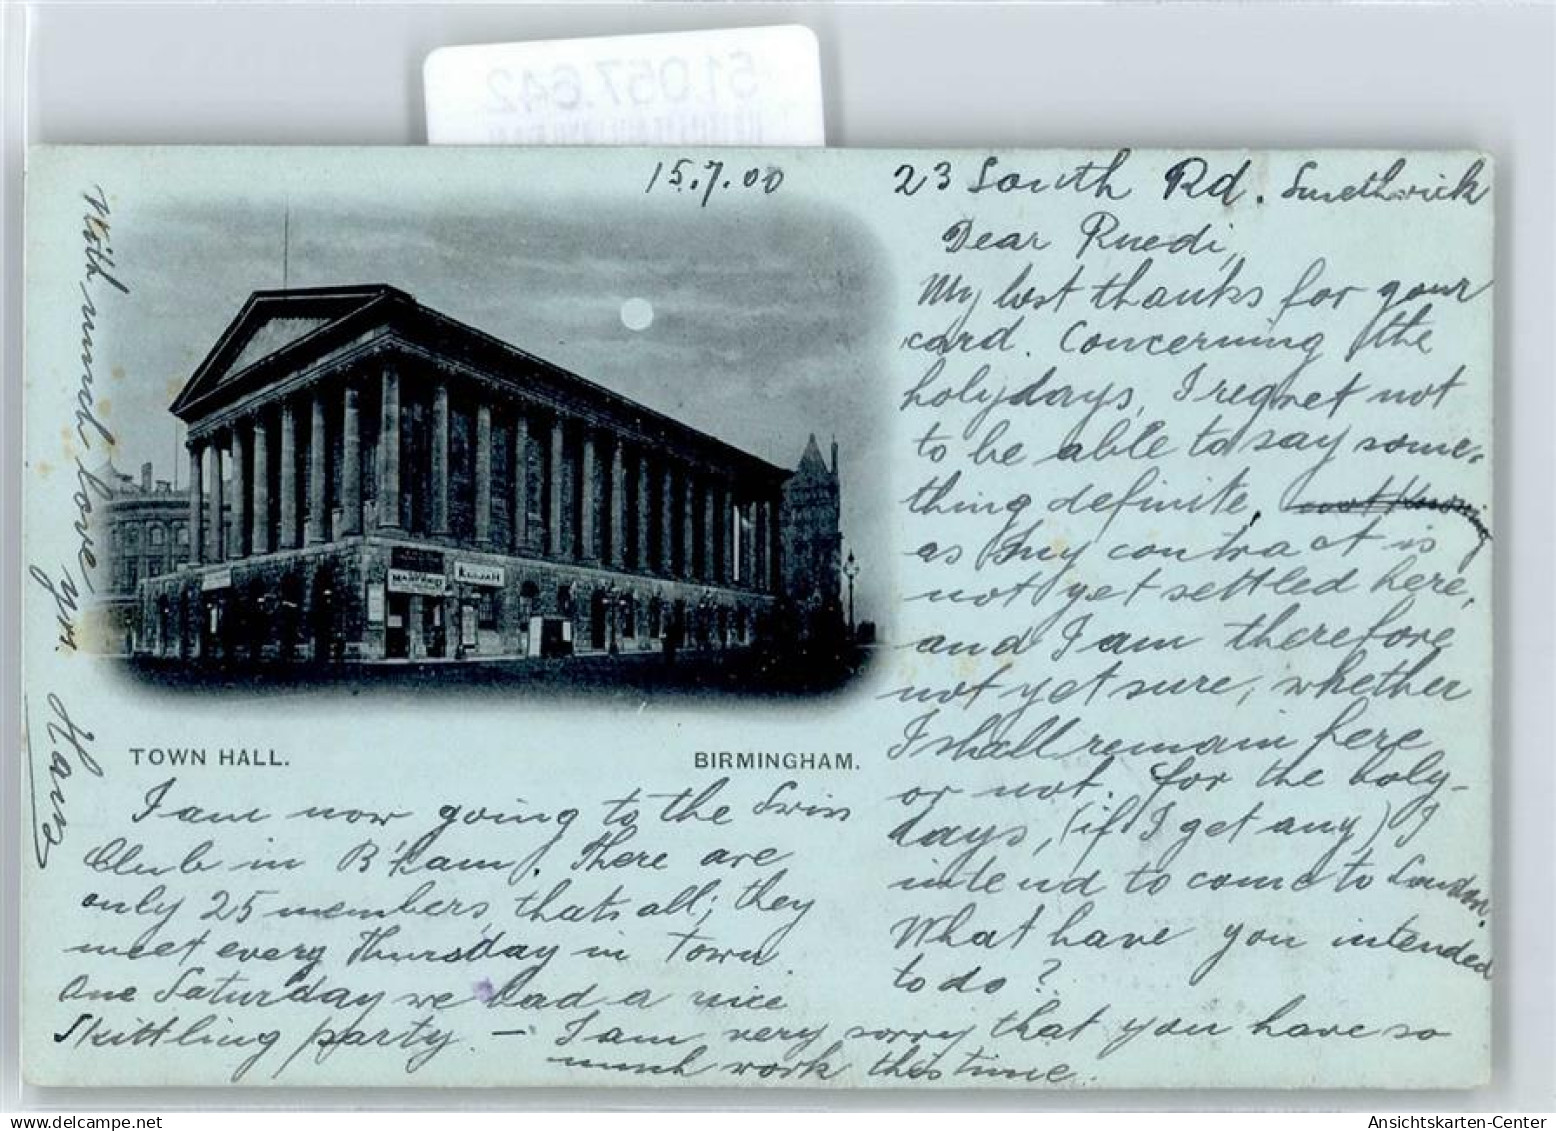 51.057.642
15.7.00
23 South Rd. Smethwick
Dear Ruedi,
My best thanks for your
card. Concerning the
holydays, I regret not
to be able to say some-
thing definite, not knowing
as my contract is
not yet settled here,
and I am therefore
not yet sure, whether
I shall remain here
or not. For the holy-
days, (if I get any) I
intend to come to London.
What have you intended
to do?
TOWN HALL. BIRMINGHAM.
ELIJAH
I am now going to the Swiss
Club in B'ham. There are
only 25 members, thats all; they
meet every Thursday in Town.
One Saturday we had a nice
Skittling party. – I am very sorry that you have so
much work this time.
With much love
yrs.
Hans
Ansichtskarten-Center